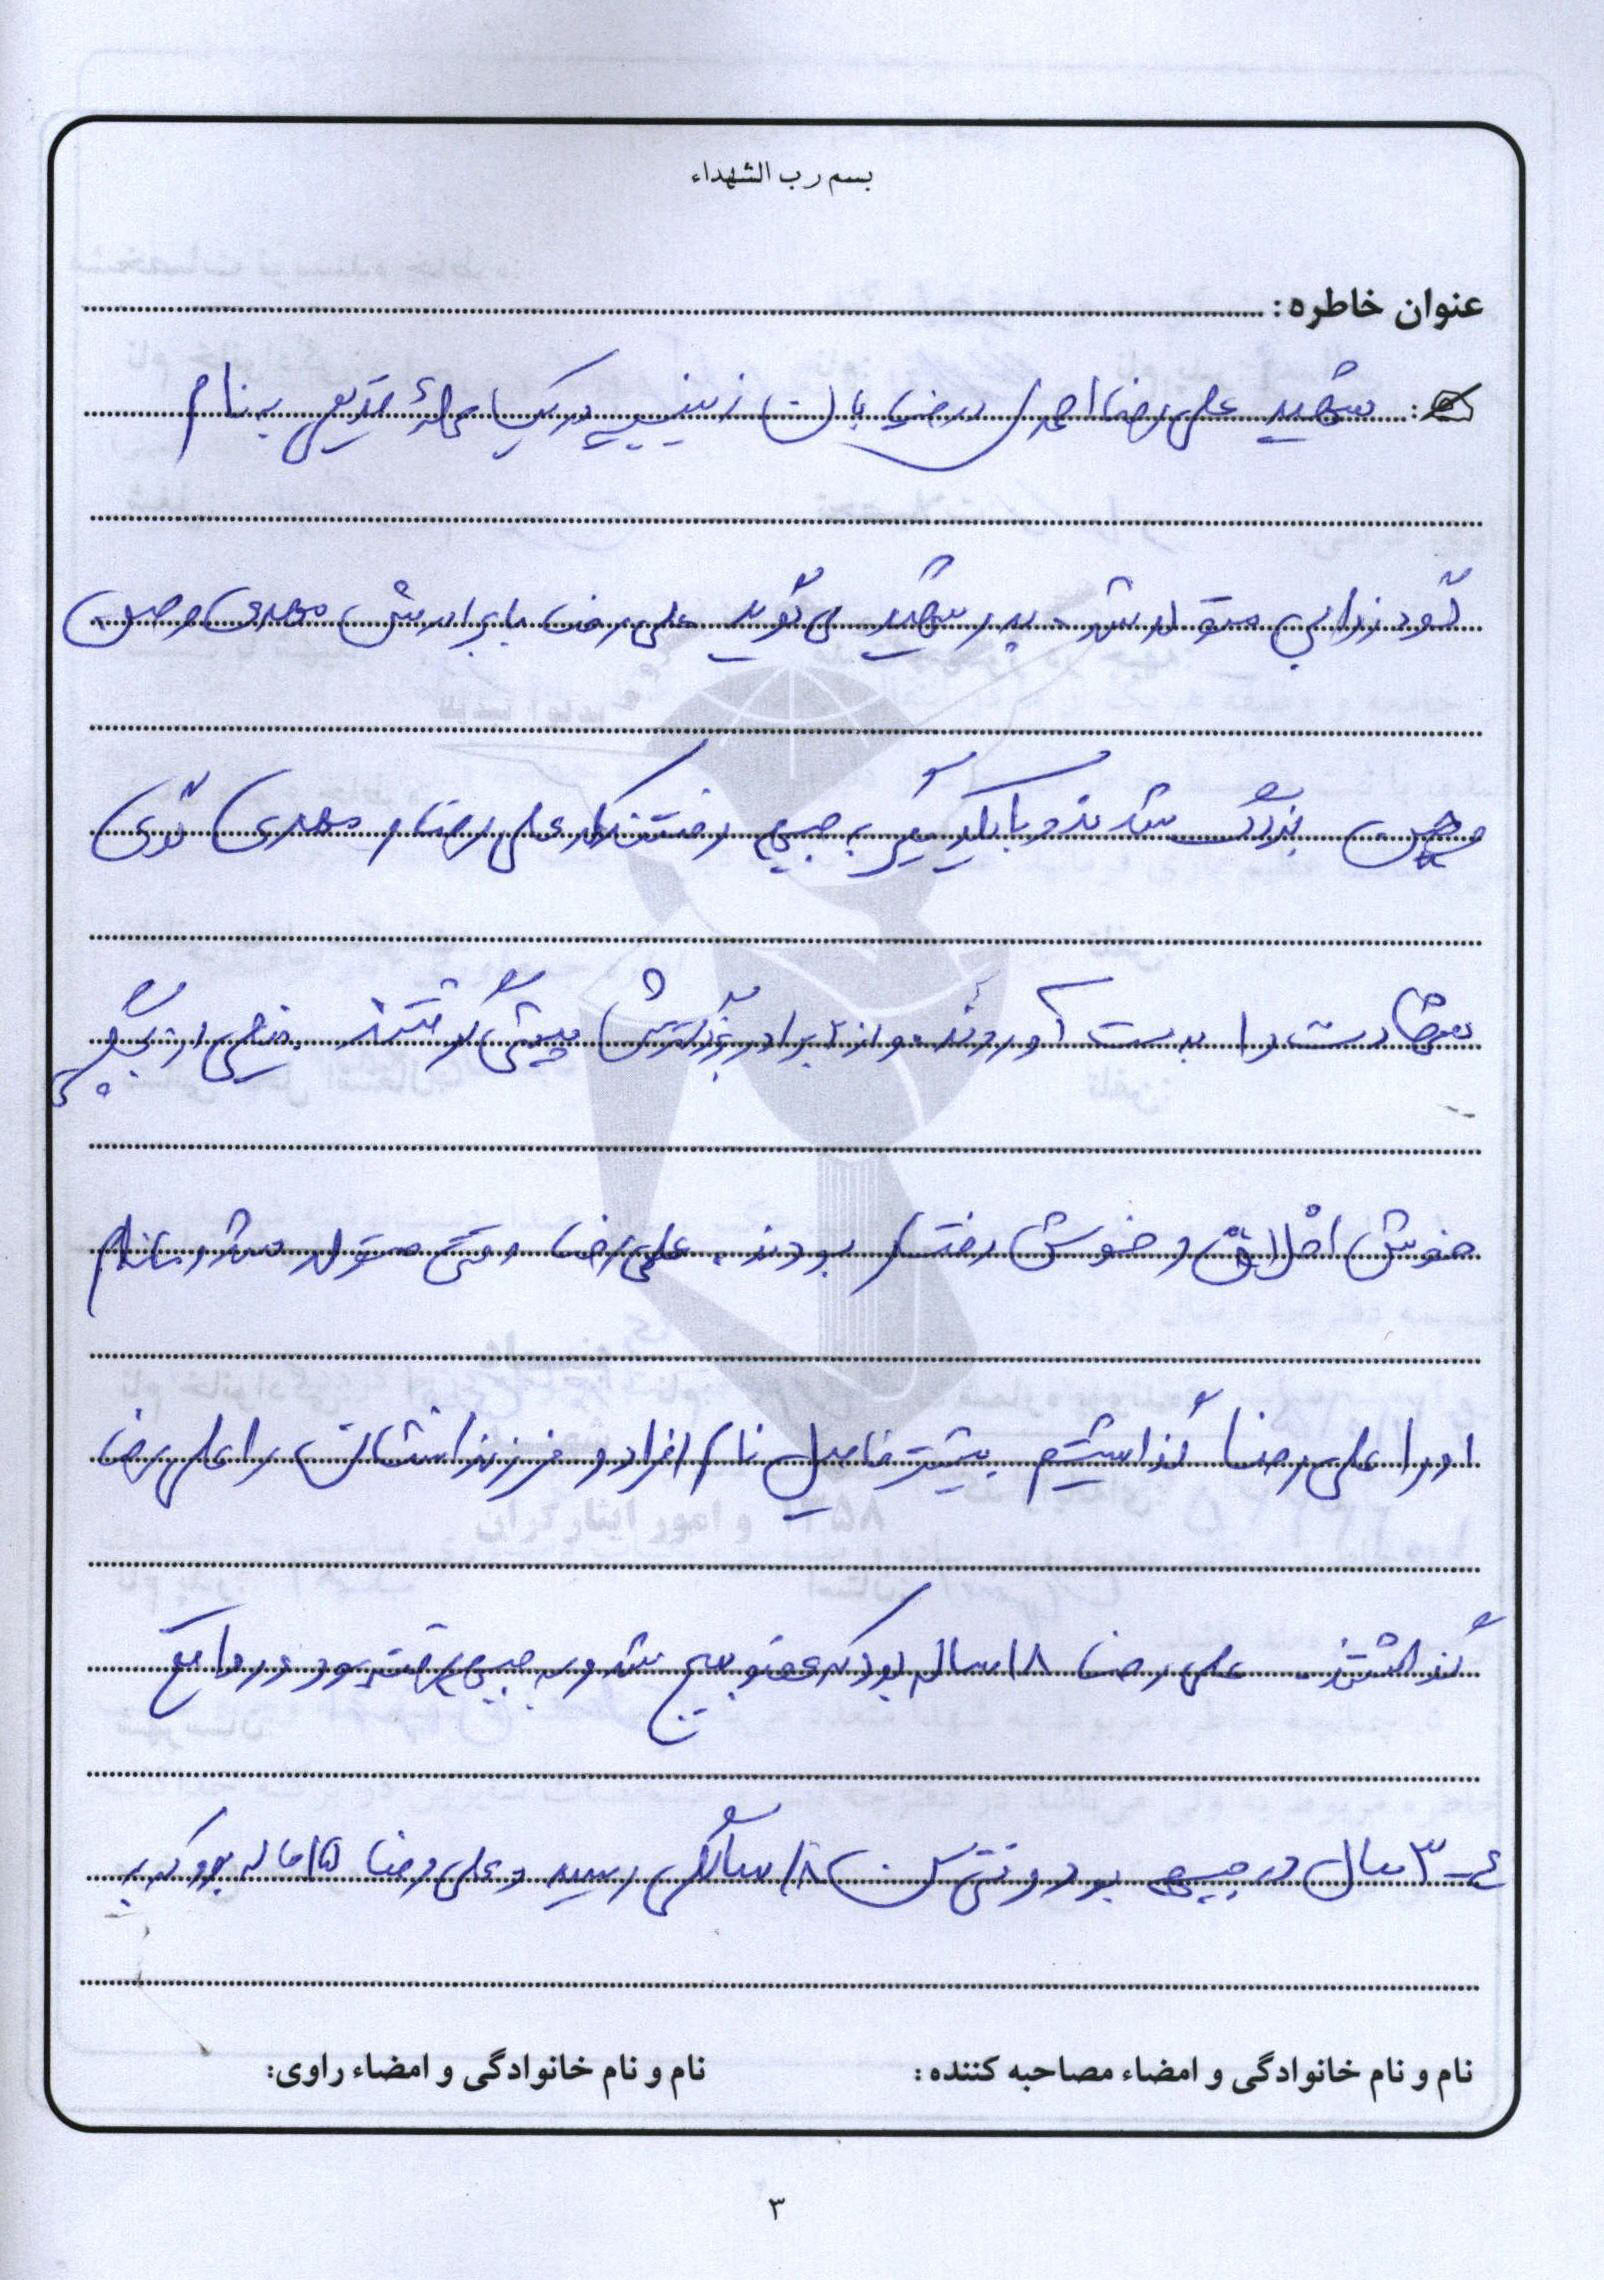 بسم رب الشهداء
عنوان خاطره :
شهید علی رضا احمدی در خیابان زینبیه در یک محله قدیمی به نام
متولد شد. پدر شهید می گوید علی رضا با برادرش مهدی و حسن
بزرگ شدند و با یکدیگر به جبهه رفتند که علی رضا و مهدی توی
شهادت را بدست آوردند و از برادر بزرگترش پیشی گرفتند. خیلی از بچگی
خوش اخلاق و خوش رفتار بودند. علی رضا وقتی متولد شد ما نام
او را علی رضا گذاشتیم بیشتر فامیل نام افراد و فرزندانشان را علی رضا
گذاشتند. علی رضا ۱۸ ساله بود که عضو بسیج شد و به جبهه رفته بود در واقع
۳-۴ سال در جبهه بود وقتی سن ۱۸ سالگی رسید و علی رضا ۱۵ ساله بود که به
نام و نام خانوادگی و امضاء مصاحبه کننده :
نام و نام خانوادگی و امضاء راوی:
۳